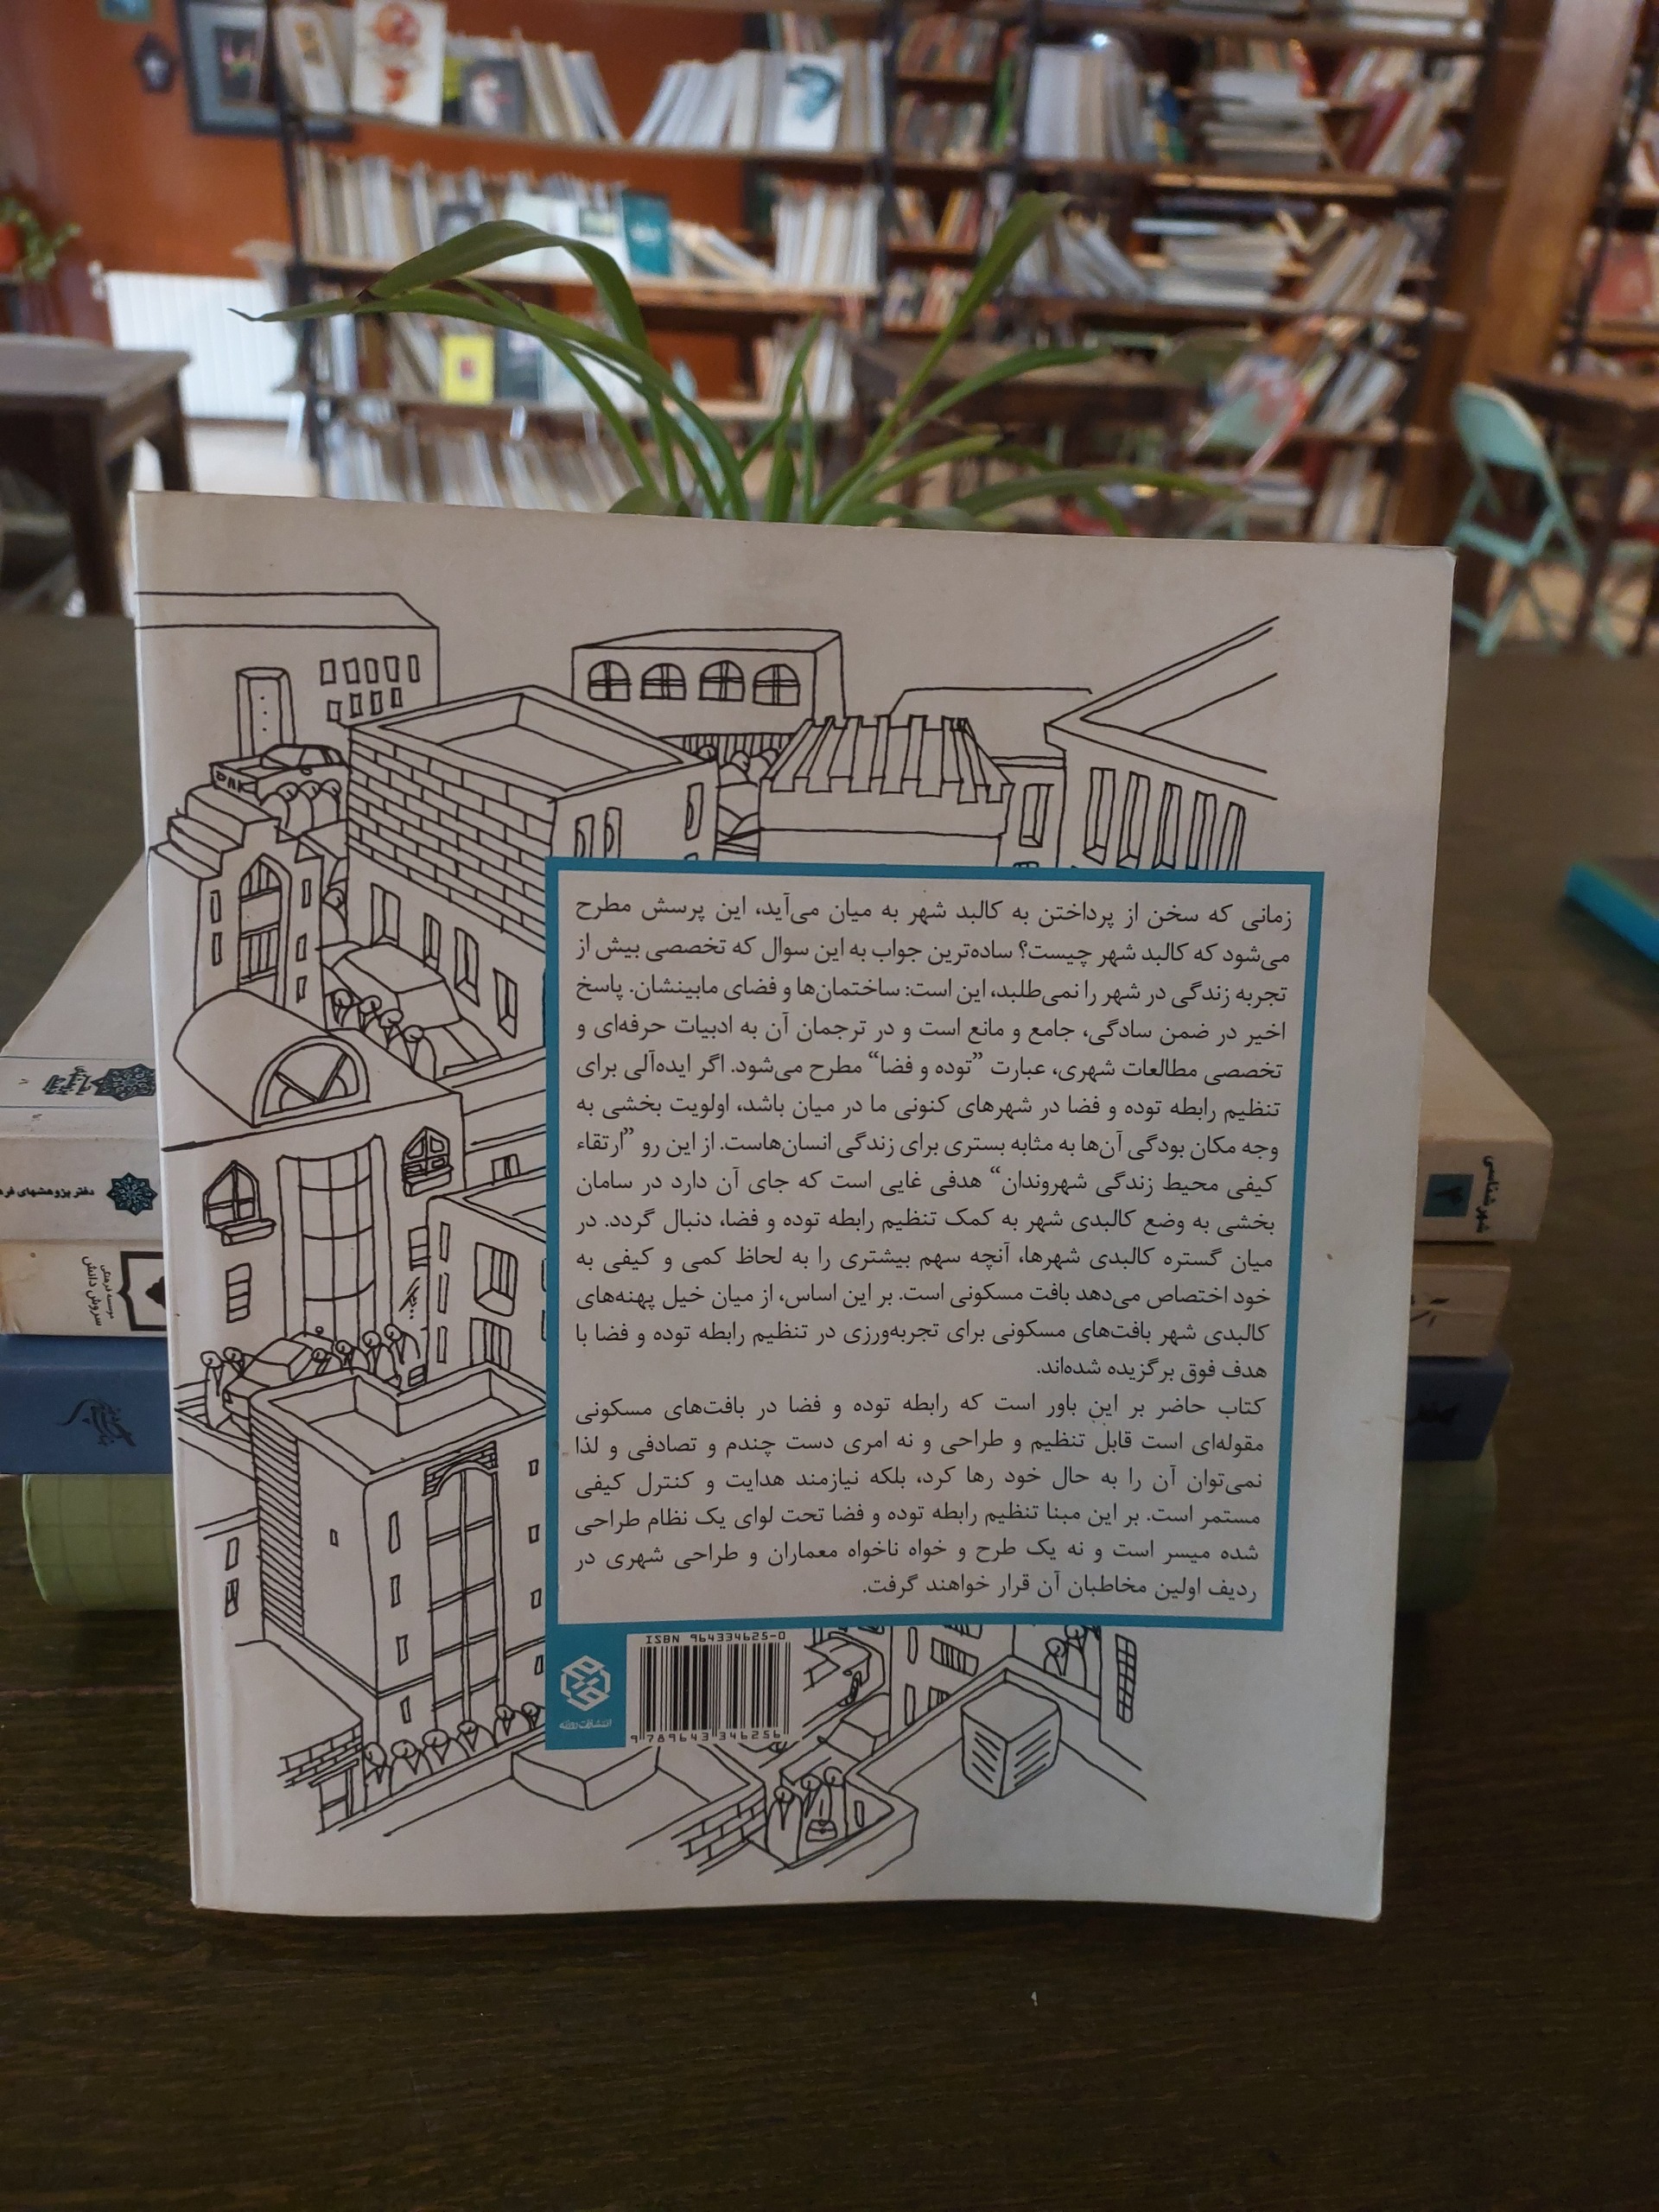 زمانی که سخن از پرداختن به کالبد شهر به میان می‌آید، این پرسش مطرح
می‌شود که کالبد شهر چیست؟ ساده‌ترین جواب به این سوال که تخصصی بیش از
تجربه زندگی در شهر را نمی‌طلبد، این است: ساختمان‌ها و فضای مابینشان. پاسخ
اخیر در ضمن سادگی، جامع و مانع است و در ترجمان آن به ادبیات حرفه‌ای و
تخصصی مطالعات شهری، عبارت ”توده و فضا“ مطرح می‌شود. اگر ایده‌آلی برای
تنظیم رابطه توده و فضا در شهرهای کنونی ما در میان باشد، اولویت بخشی به
وجه مکان بودگی آن‌ها به مثابه بستری برای زندگی انسان‌هاست. از این رو ”ارتقاء
کیفی محیط زندگی شهروندان“ هدفی غایی است که جای آن دارد در سامان
بخشی به وضع کالبدی شهر به کمک تنظیم رابطه توده و فضا، دنبال گردد. در
میان گستره کالبدی شهرها، آنچه سهم بیشتری را به لحاظ کمی و کیفی به
خود اختصاص می‌دهد بافت مسکونی است. بر این اساس، از میان خیل پهنه‌های
کالبدی شهر بافت‌های مسکونی برای تجربه‌ورزی در تنظیم رابطه توده و فضا با
هدف فوق برگزیده شده‌اند.
کتاب حاضر بر این باور است که رابطه توده و فضا در بافت‌های مسکونی
مقوله‌ای است قابل تنظیم و طراحی و نه امری دست چندم و تصادفی و لذا
نمی‌توان آن را به حال خود رها کرد، بلکه نیازمند هدایت و کنترل کیفی
مستمر است. بر این مبنا تنظیم رابطه توده و فضا تحت لوای یک نظام طراحی
شده میسر است و نه یک طرح و خواه ناخواه معماران و طراحی شهری در
ردیف اولین مخاطبان آن قرار خواهند گرفت.
ISBN 964334625-0
9 789643 346256
دفتر پژوهشهای
موسسه فرهنگی
سروش دانش
شهرشناسی
۳